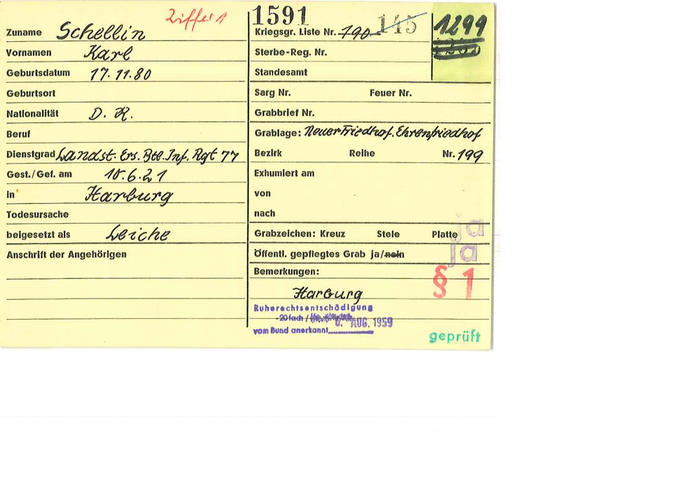 Ziffer 1
Zuname Schellin
Vornamen Karl
Geburtsdatum 17.11.80
Geburtsort
Nationalität D. R.
Beruf
Dienstgrad Landst. Ers. Btl. Inf. Rgt 77
Gest./Gef. am 18.6.21
in Harburg
Todesursache
beigesetzt als Leiche
Anschrift der Angehörigen
1591
Kriegsgr. Liste Nr. 790 145
1299
Sterbe-Reg. Nr.
Standesamt
Sarg Nr. Feuer Nr.
Grabbrief Nr.
Grablage: Neuer Friedhof. Ehrenfriedhof
Bezirk Reihe Nr. 199
Exhumiert am
von
nach
Grabzeichen: Kreuz Stele Platte
ja
Öffentl. gepflegtes Grab ja/nein
ja
Bemerkungen:
§ 1
Harburg
Ruherechtsentschädigung
-20fach/
AUG. 1959
vom Bund anerkannt
geprüft